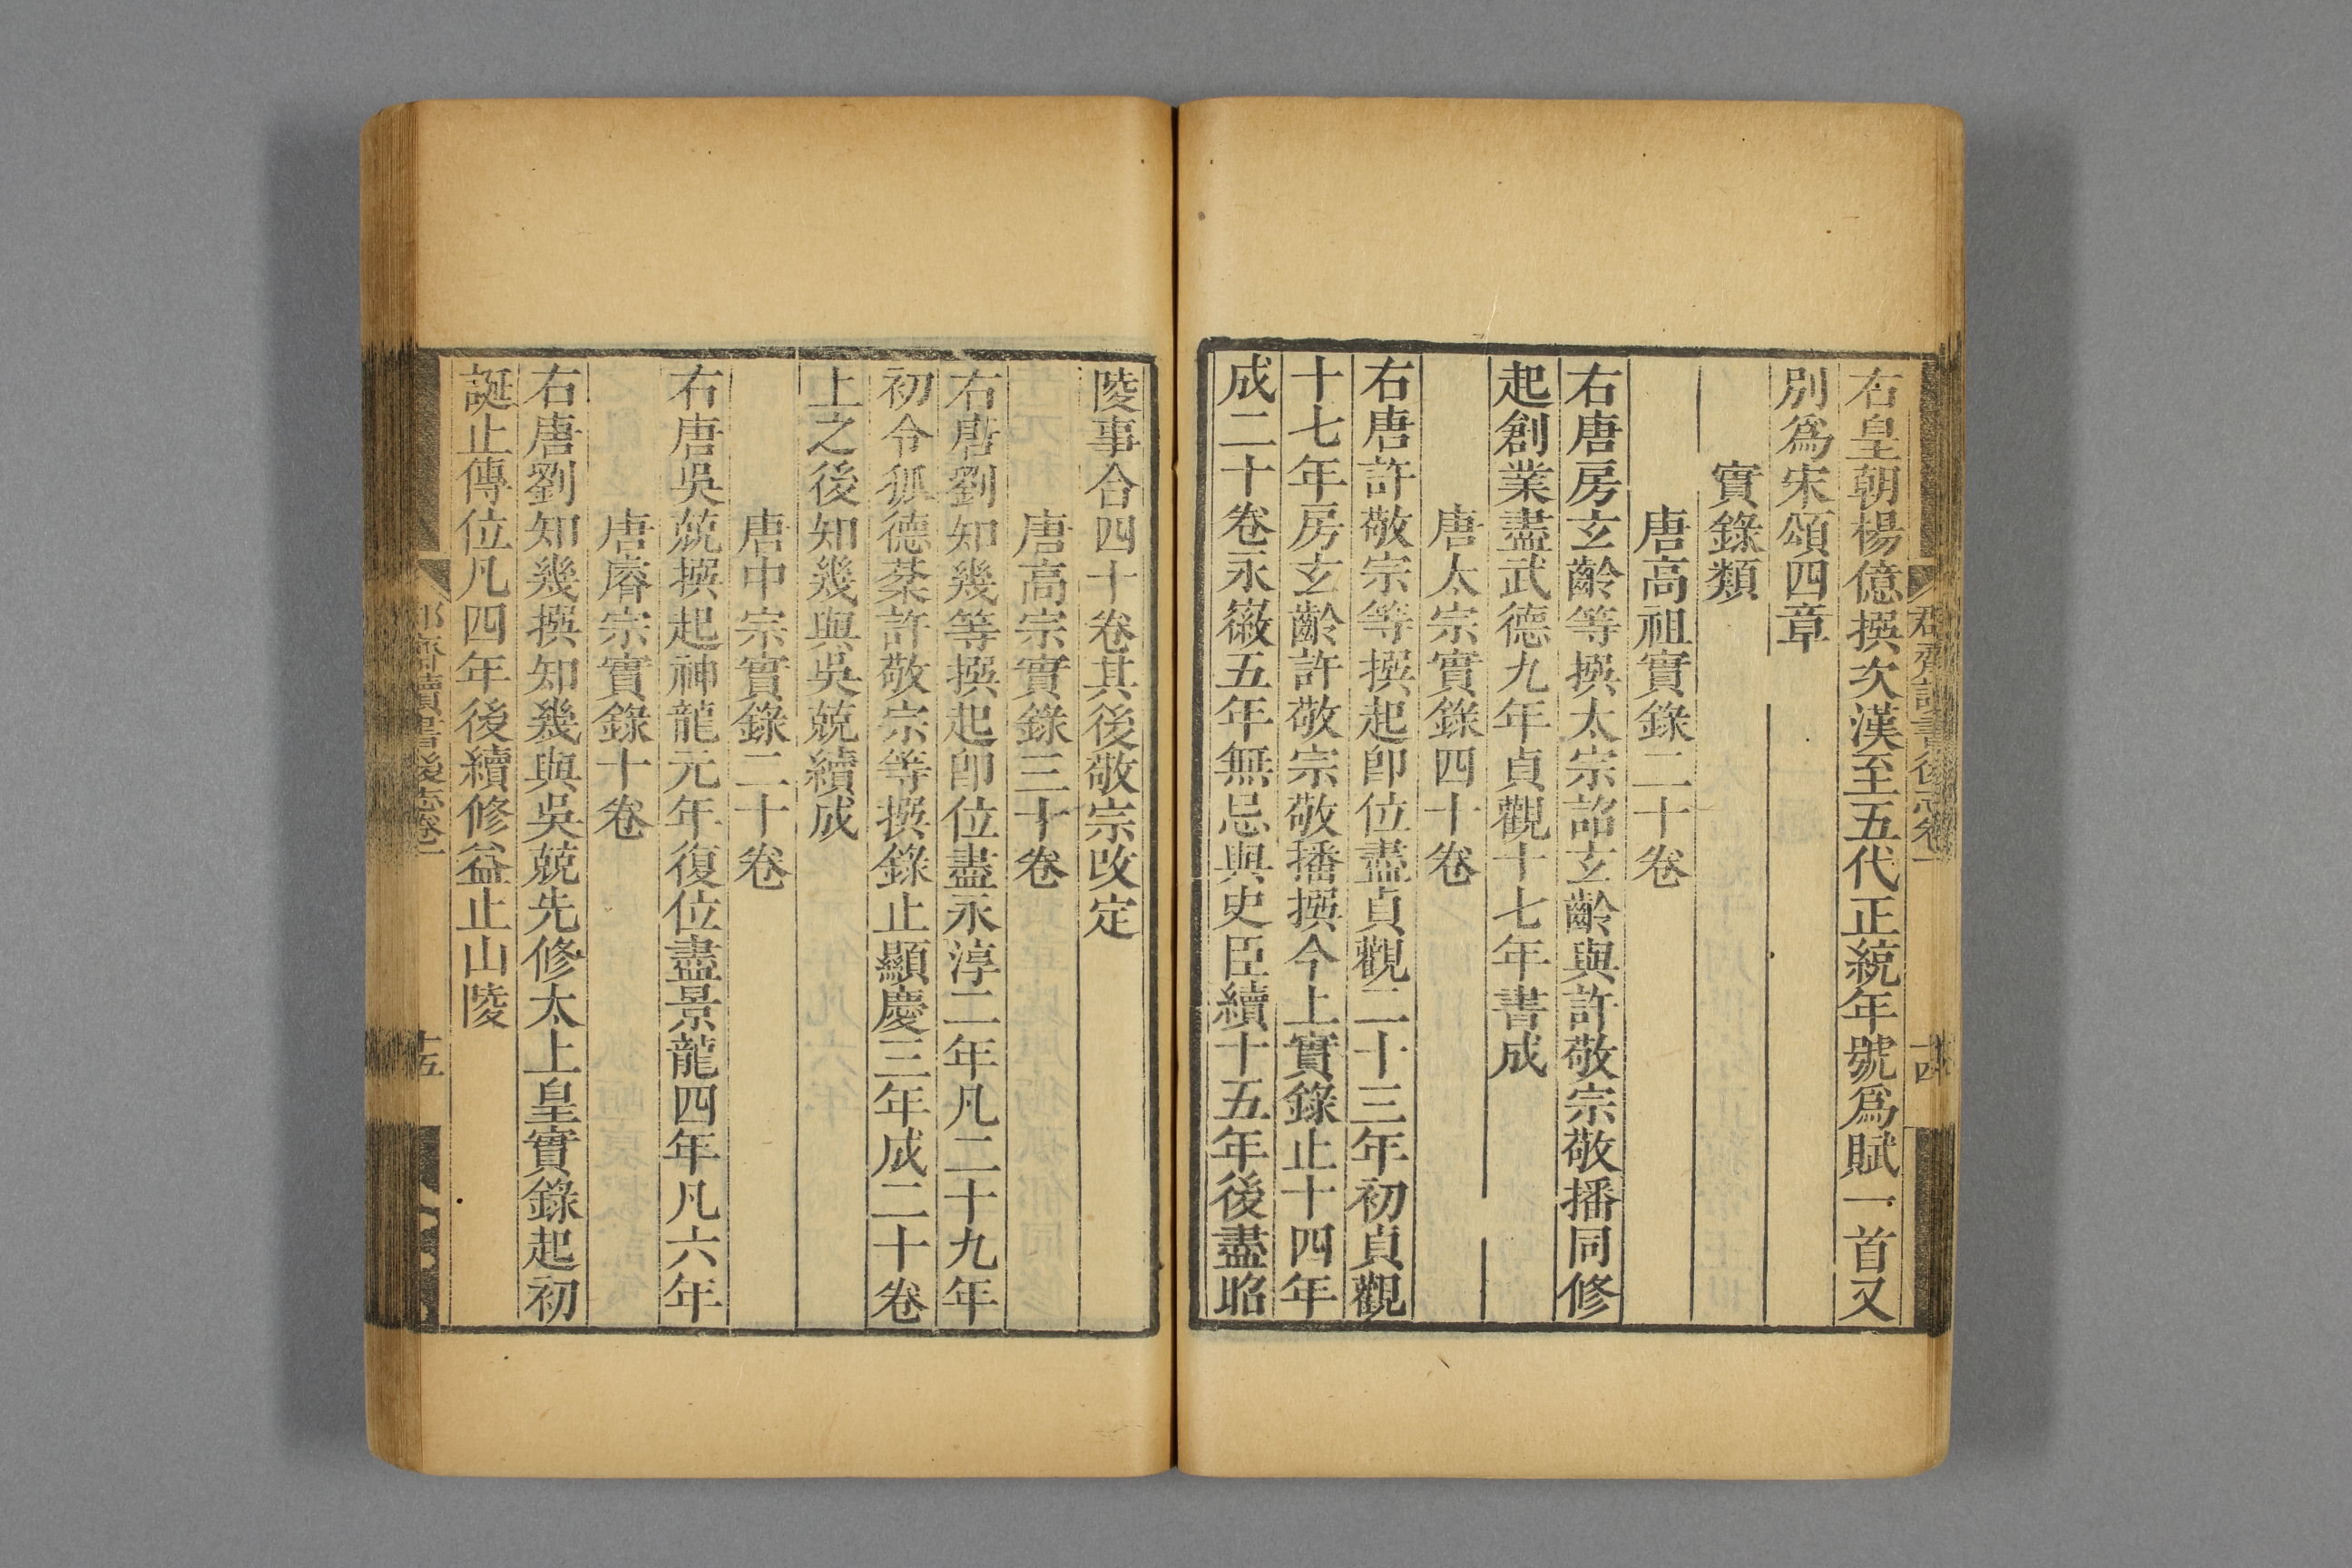 右皇朝楊億撰次漢至五代正統年號爲賦一首又
別爲宋頌四章
實錄類
唐高祖實錄二十卷
右唐房玄齡等撰太宗詔玄齡與許敬宗敬播同修
起創業盡武德九年貞觀十七年書成
唐太宗實錄四十卷
右唐許敬宗等撰起卽位盡貞觀二十三年初貞觀
十七年房玄齡許敬宗敬播撰今上實錄止十四年
成二十卷永徽五年無忌與史臣續十五年後盡昭
陵事合四十卷其後敬宗改定
唐高宗實錄三十卷
右唐劉知幾等撰起卽位盡永淳二年凡二十九年
初令狐德棻許敬宗等撰錄止顯慶三年成二十卷
上之後知幾與吳兢續成
唐中宗實錄二十卷
右唐吳兢撰起神龍元年復位盡景龍四年凡六年
唐睿宗實錄十卷
右唐劉知幾撰知幾與吳兢先修太上皇實錄起初
誕止傳位凡四年後續修益止山陵
郡齋讀書後志卷一
十五